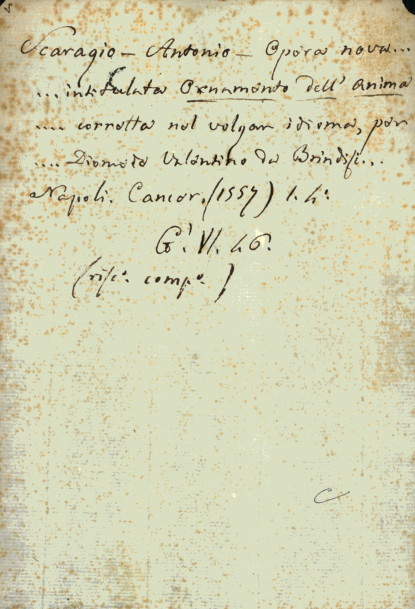 Scaragio - Antonio - Opera nova...
... intitulata Ornamento dell' anima
.... corretta nel volgar idioma, per
.... Diomede Valentino da Brindisi...
Napoli. Cancer. (1557) 1. 4°.
G. VI. 46.
(risc°. comp°. )